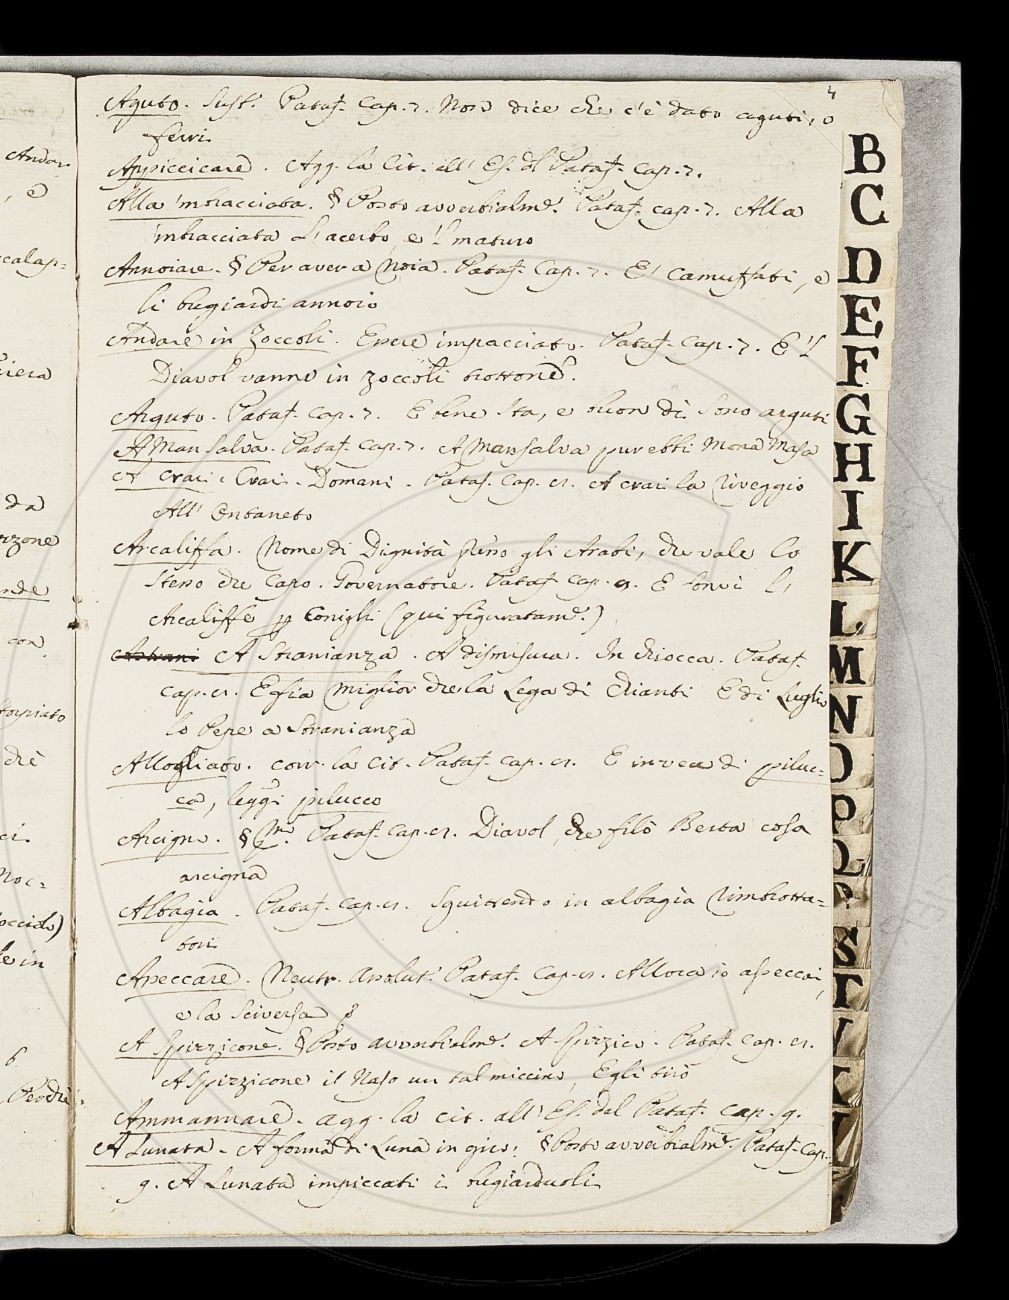 4
Aguto. Sust. Pataf. Cap. 7. Non dice che c'è dato aguti, o
ferri
Appiccicare. Agg. la Cit. all' Es. dl Pataf. Cap. 7.
Alla 'mbracciata. § Posto avverbialme. Pataf. cap. 7. Alla
'mbracciata l'acerbo, e 'l maturo
Annoiare. § Per aver a Noia. Pataf. Cap. 7. E' camuffati, e
li bugiardi annoio
Andare in Zoccoli. Essere impacciato. Pataf. Cap. 7. E 'l
Diavol vanne in zoccoli trottone.
Arguto. Pataf. Cap. 7. E bene sta, e buon dì sono arguti
A Man Salva. Pataf. Cap. 7. A Mansalva pur ebbi Mona Masa
A Crai. Crai. Domani. Pataf. Cap. 8. A crai la riveggio
All'
Arcaliffa. Nome di Dignità gli Arabi, che vale lo
stesso che Capo. Governatore. Pataf. Cap. 8. E sonvi li
Arcaliffe p Conigli (qui figuratame.)
A Stranianza. A dismisura. In chiocca. Pataf.
cap. 8. Egli a miglior che la Lega di Chianti E di Luglio
lo Pepe a Stranianza
Allogliato. corr. la Cit. Pataf. Cap. 8. E invece di piluc-
ca, leggi pilucco
Arcigno. § Pataf. Cap. 8. Diavol, che filò Berta cosa
arcigna
Albagia. Pataf. Cap. 8. Squittendo in albagia rimbrotta-
tori
Apeccare. Neutr. Assolut. Pataf. Cap. 8. Allora io apeccai,
e la
A Spizzicone. § Posto avverbialme. A spizzico. Pataf. Cap. 8.
A Spizzicone il Naso un tal miccino, Egli tirò
Ammannare. agg. la cit. all' Es. del Pataf. Cap. 9.
A Lunata. A forma di Luna in giro. § Posto avverbialme. Pataf. Cap.
9. A Lunata impiccati i bugiarduoli
Andar
, e
calap=
riera
da
orzone
nde
con
torpiato
chè
ci.
Noc=
occido)
le in
6
Perchè
B
C
D
E
F
G
H
I
K
L
M
N
O
P
Q
S
T
V
X